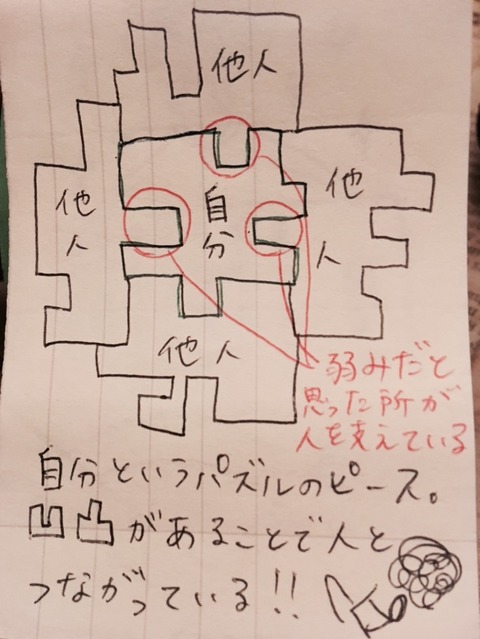 他人
他人
自分
他人
他人
弱みだと
思った所が
人を支えている
自分というパズルのピース。
凹凸があることで人と
つながっている!!